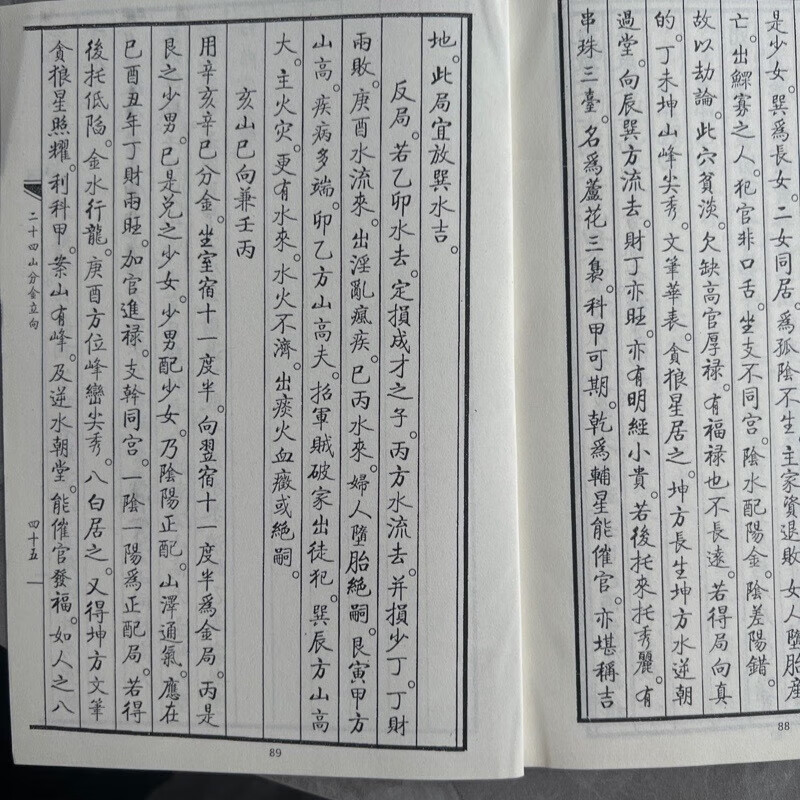 是少女。巽爲長女。二女同居。爲孤陰不生。主家資退敗。女人墮胎產
亡。出鰥寡之人。犯官非口舌。坐支不同宮。陰水配陽金。陰差陽錯。
故以劫論。此穴貧淡。欠缺高官厚禄。有福禄也不長遠。若得局向真
的。丁未坤山峰尖秀。文筆華表。貪狼星居之。坤方長生坤方水逆朝
過堂。向辰巽方流去。財丁亦旺。亦有明經小貴。若後托來托秀麗。有
串珠三臺。名爲蘆花三裊。科甲可期。乾爲輔星能催官。亦堪稱吉
88
地。此局宜放巽水吉。
反局。若乙卯水去。定損成才之子。丙方水流去。并損少丁。丁財
兩敗。庚酉水流來。出淫亂瘋疾。巳丙水來。婦人墮胎絕嗣。艮寅甲方
山高。疾病多端。卯乙方山高夫。招軍賊破家出徒犯。巽辰方山高
大。主火灾。更有水來。水火不濟。出痰火血癥或絕嗣。
亥山巳向兼壬丙
用辛亥辛巳分金。坐室宿十一度半。向翌宿十一度半爲金局。丙是
艮之少男。巳是兑之少女。少男配少女。乃陰陽正配。山澤通氣。應在
巳酉丑年丁財兩旺。加官進禄。支幹同宮。一陰一陽爲正配局。若得
後托低陷。金水行龍。庚酉方位峰巒尖秀。八白居之。又得坤方文筆
貪狼星照耀。利科甲。案山有峰。及逆水朝堂。能催官發福。如人之八
二十四山分金立向
四十五
89